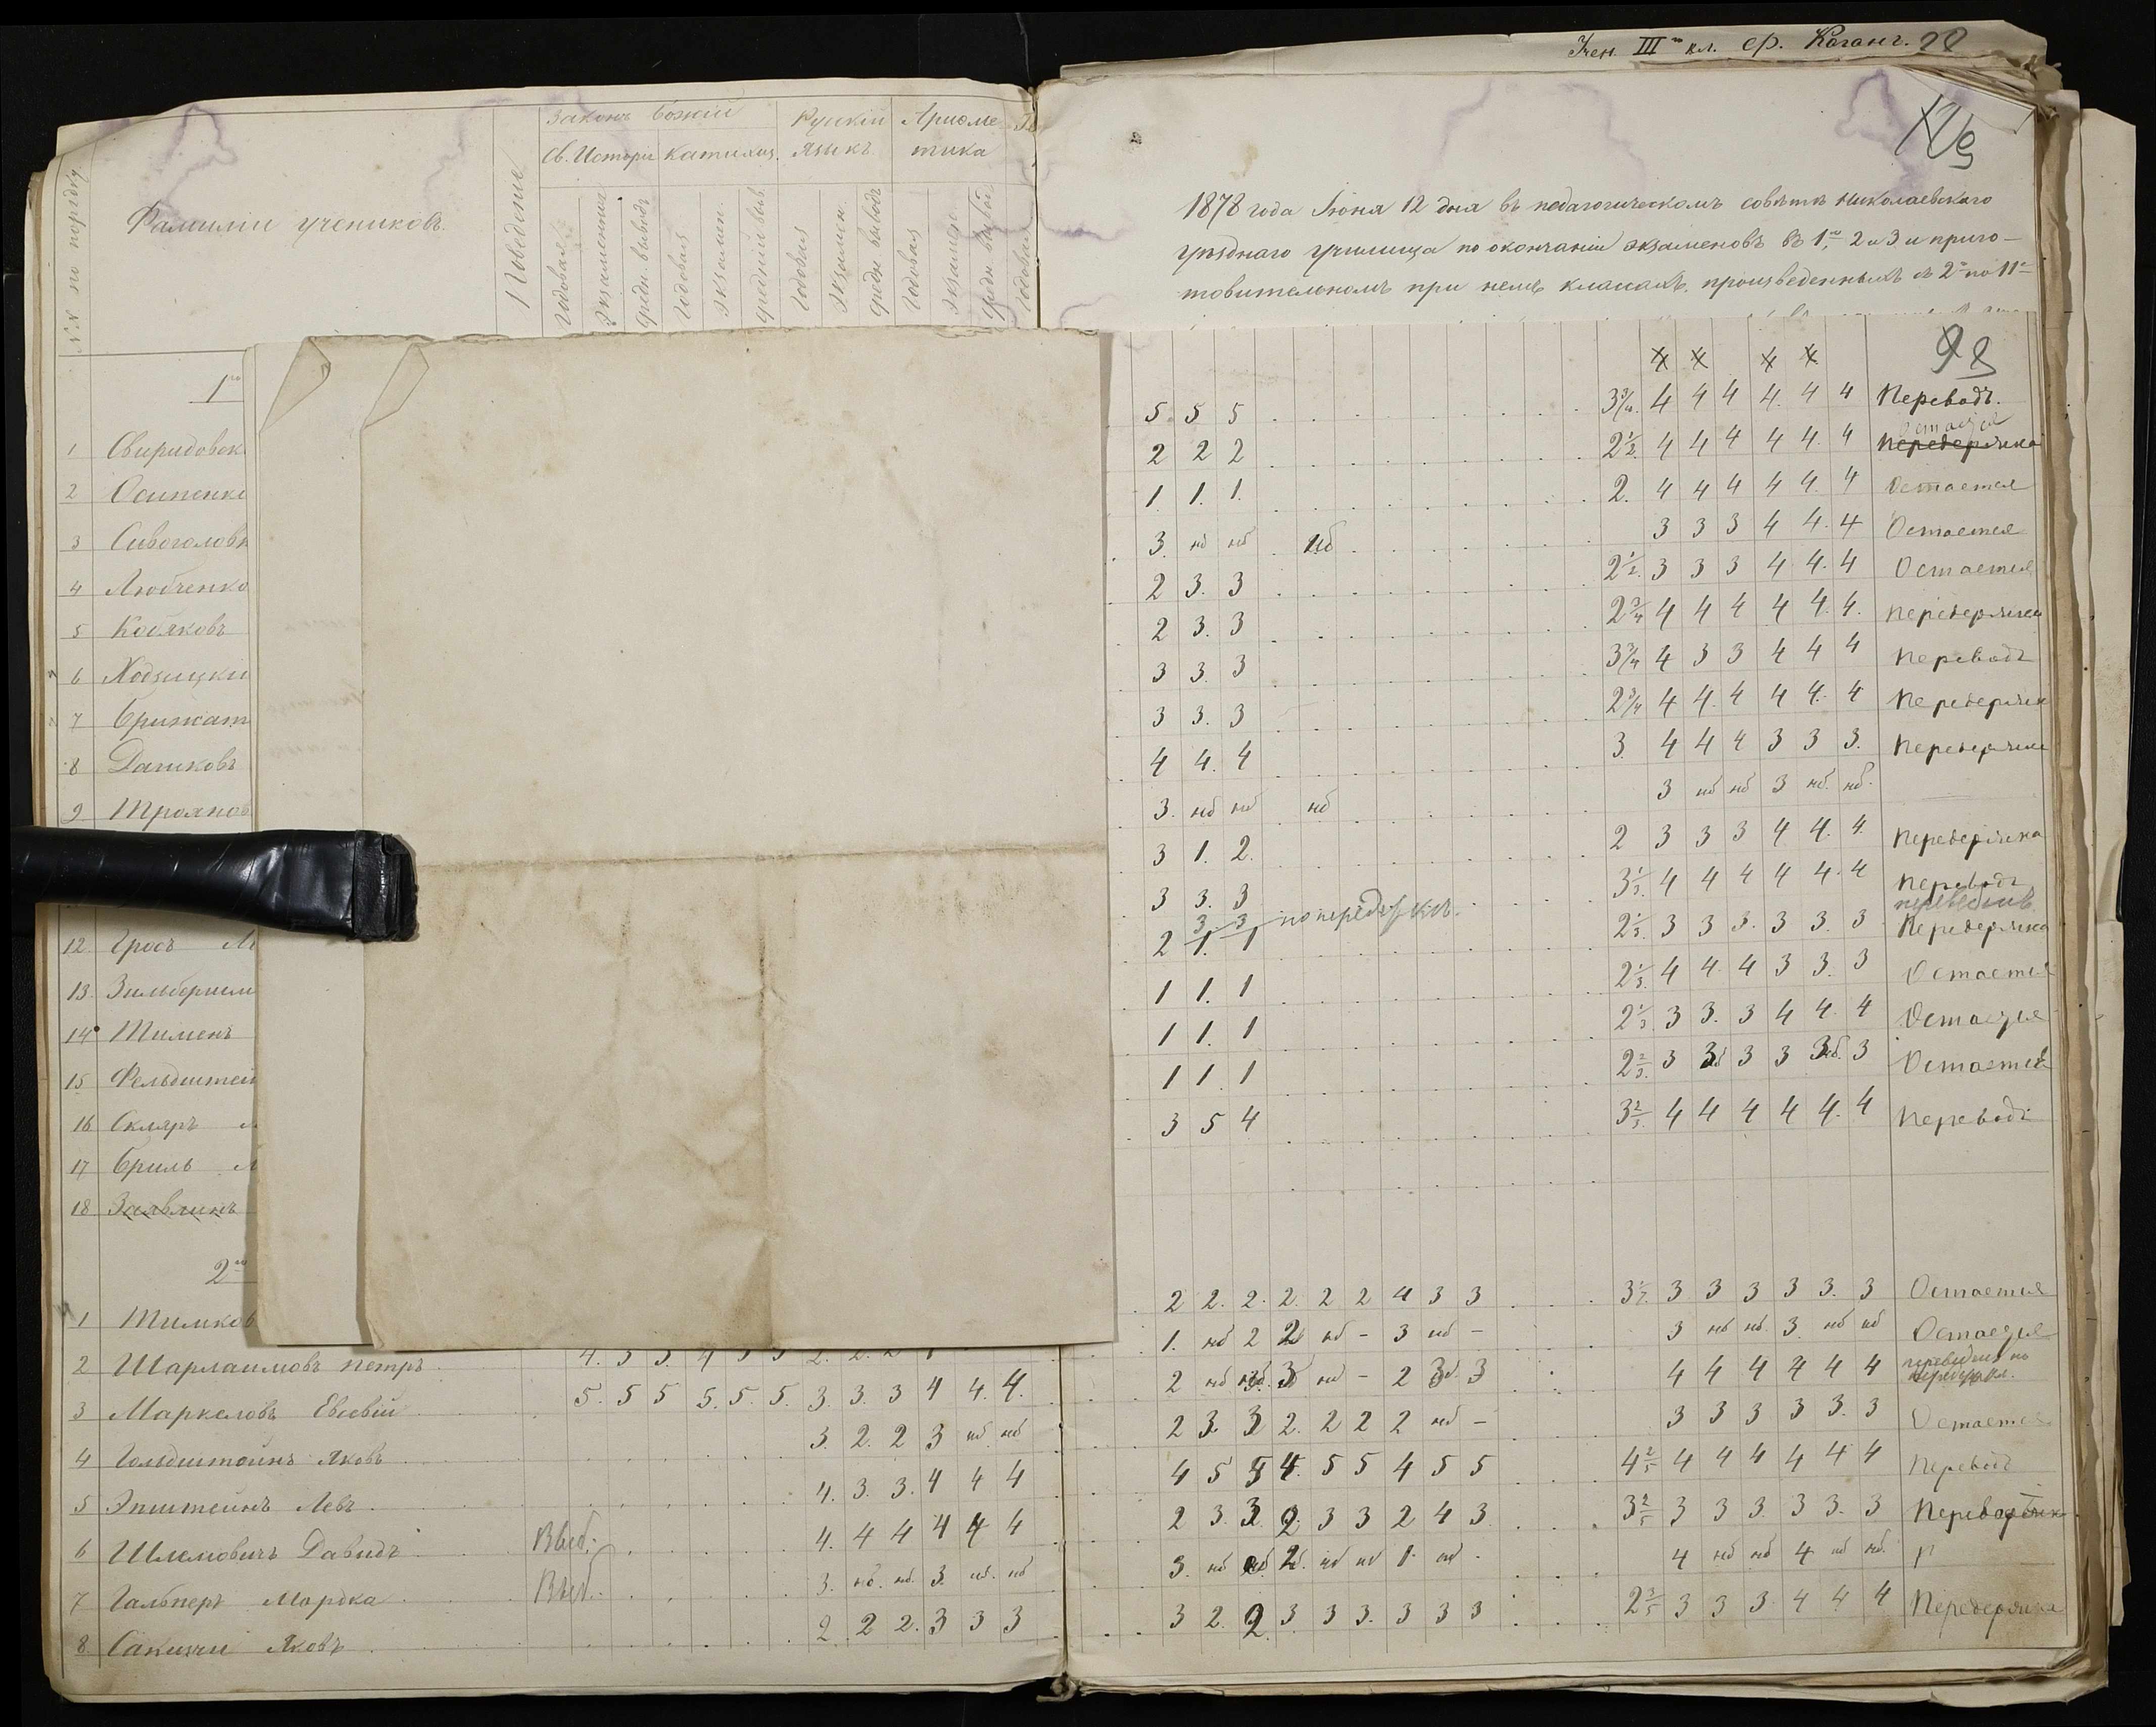 Учен. III го кл. ср. Коганъ. 28
№ по порядку
Фамиліи учениковъ.
Поведеніе
Законъ Божій
Русскій Языкъ
Ариѳметика
Св. Исторія
Катихиз.
Годовая
Экзаменная
Средн. выводъ
Годовая
Экзамен.
Средній выв.
Годовая
Экзамен.
Средн. выводъ
Годовая
Экзамен.
Средн. вывод
Годовая
1878 года Іюня 12 дня въ педагогическомъ совѣтѣ Николаевскаго
уѣзднаго училища по окончаніи экзаменовъ въ 1мъ, 2 и 3 и приго-
товительномъ при немъ класахъ, произведенныхъ съ 2го по 11е
98
1го
5 5 5 3 3/4. 4 4 4 4. 4 4 Переводъ.
1 Свиридовск
2 2 2 2 1/2. 4 4 4 4 4. 4 Остается
Передержка
2 Осипенко
1. 1. 1. 2. 4 4 4 4 4. 4 Остается
3 Сивоголовк
3. нб нб нб 3 3 3 4 4. 4 Остается
4 Любченко
2 3. 3 2 1/2. 3 3 3 4 4. 4 Остается
5 Кобяковъ
2 3. 3 2 3/4 4 4 4 4 4. 4. Передержка
6 Ходзицкій
3 3. 3 3 3/4 4 3 3 4 4 4 Переводъ
7 Брижат
3 3. 3 2 3/4 4 4. 4 4 4. 4 Передержк
8 Дашковъ
4 4. 4 3. 4 4 4 3 3 3. Передержка
9 Троянов
3. нб нб нб 3 нб нб 3 нб. нб.
3 1. 2. 2 3 3 3 4 4. 4. Передержка
3 3. 3 3 1/3. 4 4 4 4 4. 4 Переводъ
12. Гросъ М
3 3 по передержкѣ.
2 1. 1 2 1/3. 3 3 3. 3 3. 3 Передержка
13. Зильберши
1 1. 1 2 1/3. 4 4. 4 3 3. 3 Остается
14 Тименъ
1 1. 1 2 1/3 3 3. 3 4 4. 4 Остается
15 Фельдштей
1 1. 1 2 2/3. 3 3 3 3 3 3 Остается
16 Скляръ
3 5 4 3 2/3. 4 4 4 4 4. 4 Переводъ
17 Бриль
18 Заявлинъ
2го
2 2. 2. 2. 2 2 4 3 3 3 1/2. 3 3 3 3 3. 3 Остается
1 Тимков
1. нб 2 2 нб - 3 нб - 3 нб нб. 3. нб нб Остается
2 Шарлаимовъ Петръ
2 нб 3 3 нб - 2 3 3 4 4 4 4 4 4
5. 5 5 5. 5. 5. 3. 3. 3 4 4. 4.
3 Маркеловъ Евсевій
2 3 3 2. 2 2 2 нб - 3 3 3 3 3. 3 Остается
3. 2. 2 3 нб нб
4 Гольдштейнъ Яковъ
4 5 5 4. 5 5 4 5 5 4 2/5 4 4 4 4 4 4 Переводъ
4. 3. 3. 4 4 4
5 Эпштейнъ Левъ
2 3. 3. 2. 3 3 2 4 3. 3 2/5 3 3 3. 3 3. 3
4. 4 4 4 4 4
6 Шлемовичъ Давидъ Выб.
3. нб нб 2. нб нб 1. нб 4 нб нб 4 нб нб.
3. нб. нб. 3. нб. нб
7 Гальперъ Мордка Выб.
3 2. 2. 3 3 3. 3 3 3 2 3/5 3 3 3. 4 4 4 Передержка
2. 2 2. 3 3 3
8. Сакизчи Яковъ